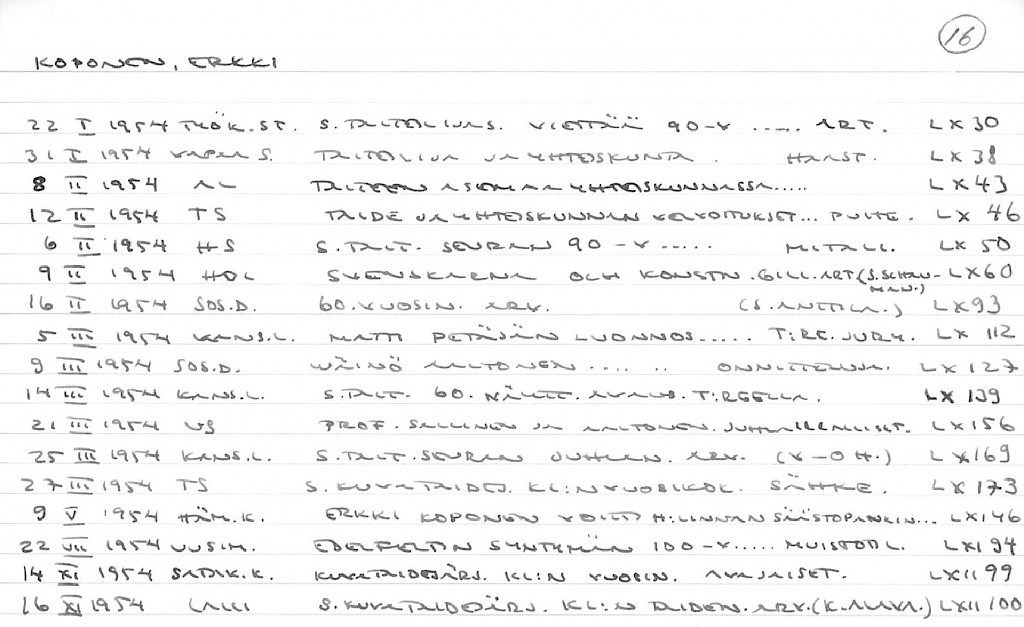 16
KOPONEN, ERKKI
22 I 1954 TYÖK.ST. S.TAITEILIJAS. VIETTÄÄ 90-V ..... ART. LX 30
31 I 1954 VAPAA S. TAITEILIJA JA YHTEISKUNTA. HAAST. LX 38
8 II 1954 AL TAITEEN ASEMA YHTEISKUNNASSA..... LX 43
12 II 1954 TS TAIDE JA YHTEISKUNNAN VELVOITUKSET... PUHE. LX 46
6 II 1954 HS S.TAIT. SEURAN 90-V ..... MITALI. LX 50
9 II 1954 HBL SVENSKARNA OCH KONSTN.GILL. ART (S.SCHAU- LX 60
MAN.)
16 II 1954 SOS.D. 60.VUOSIN. ARV. (S.ANTTILA.) LX 93
5 III 1954 KANS.L. MATTI PETÄJÄN LUONNOS..... T:RE.JURY. LX 112
9 III 1954 SOS.D. WÄINÖ AALTONEN ..... ONNITTELIJA. LX 127
14 III 1954 KANS.L. S.TAIT. 60. NÄYTT. AVAUS. T:REELLA. LX 139
21 III 1954 US PROF. SALLINEN JA AALTONEN. JUHLALLISET. LX 156
25 III 1954 KANS.L. S.TAIT.SEURAN JUHLAN. ARV. (V-O H.) LX 169
27 III 1954 TS S.KUVATAIDEJ. KL:N VUOSIKOK. SÄHKE. LX 173
9 V 1954 HÄM.K. ERKKI KOPONEN VOITTI H:LINNAN SÄÄSTÖPANKIN... LXI 46
22 VII 1954 UUSIM. EDELFELTIN SYNTYMÄN 100-V..... MUISTOTIL. LXI 94
14 XI 1954 SATAK.K. KUVATAIDEJÄRJ. KL:N VUOSIN. AVAJAISET. LXII 99
16 XI 1954 LALLI S.KUVATAIDEJÄRJ. KL:N TAIDEN. ARV. (K.ALAVA.) LXII 100